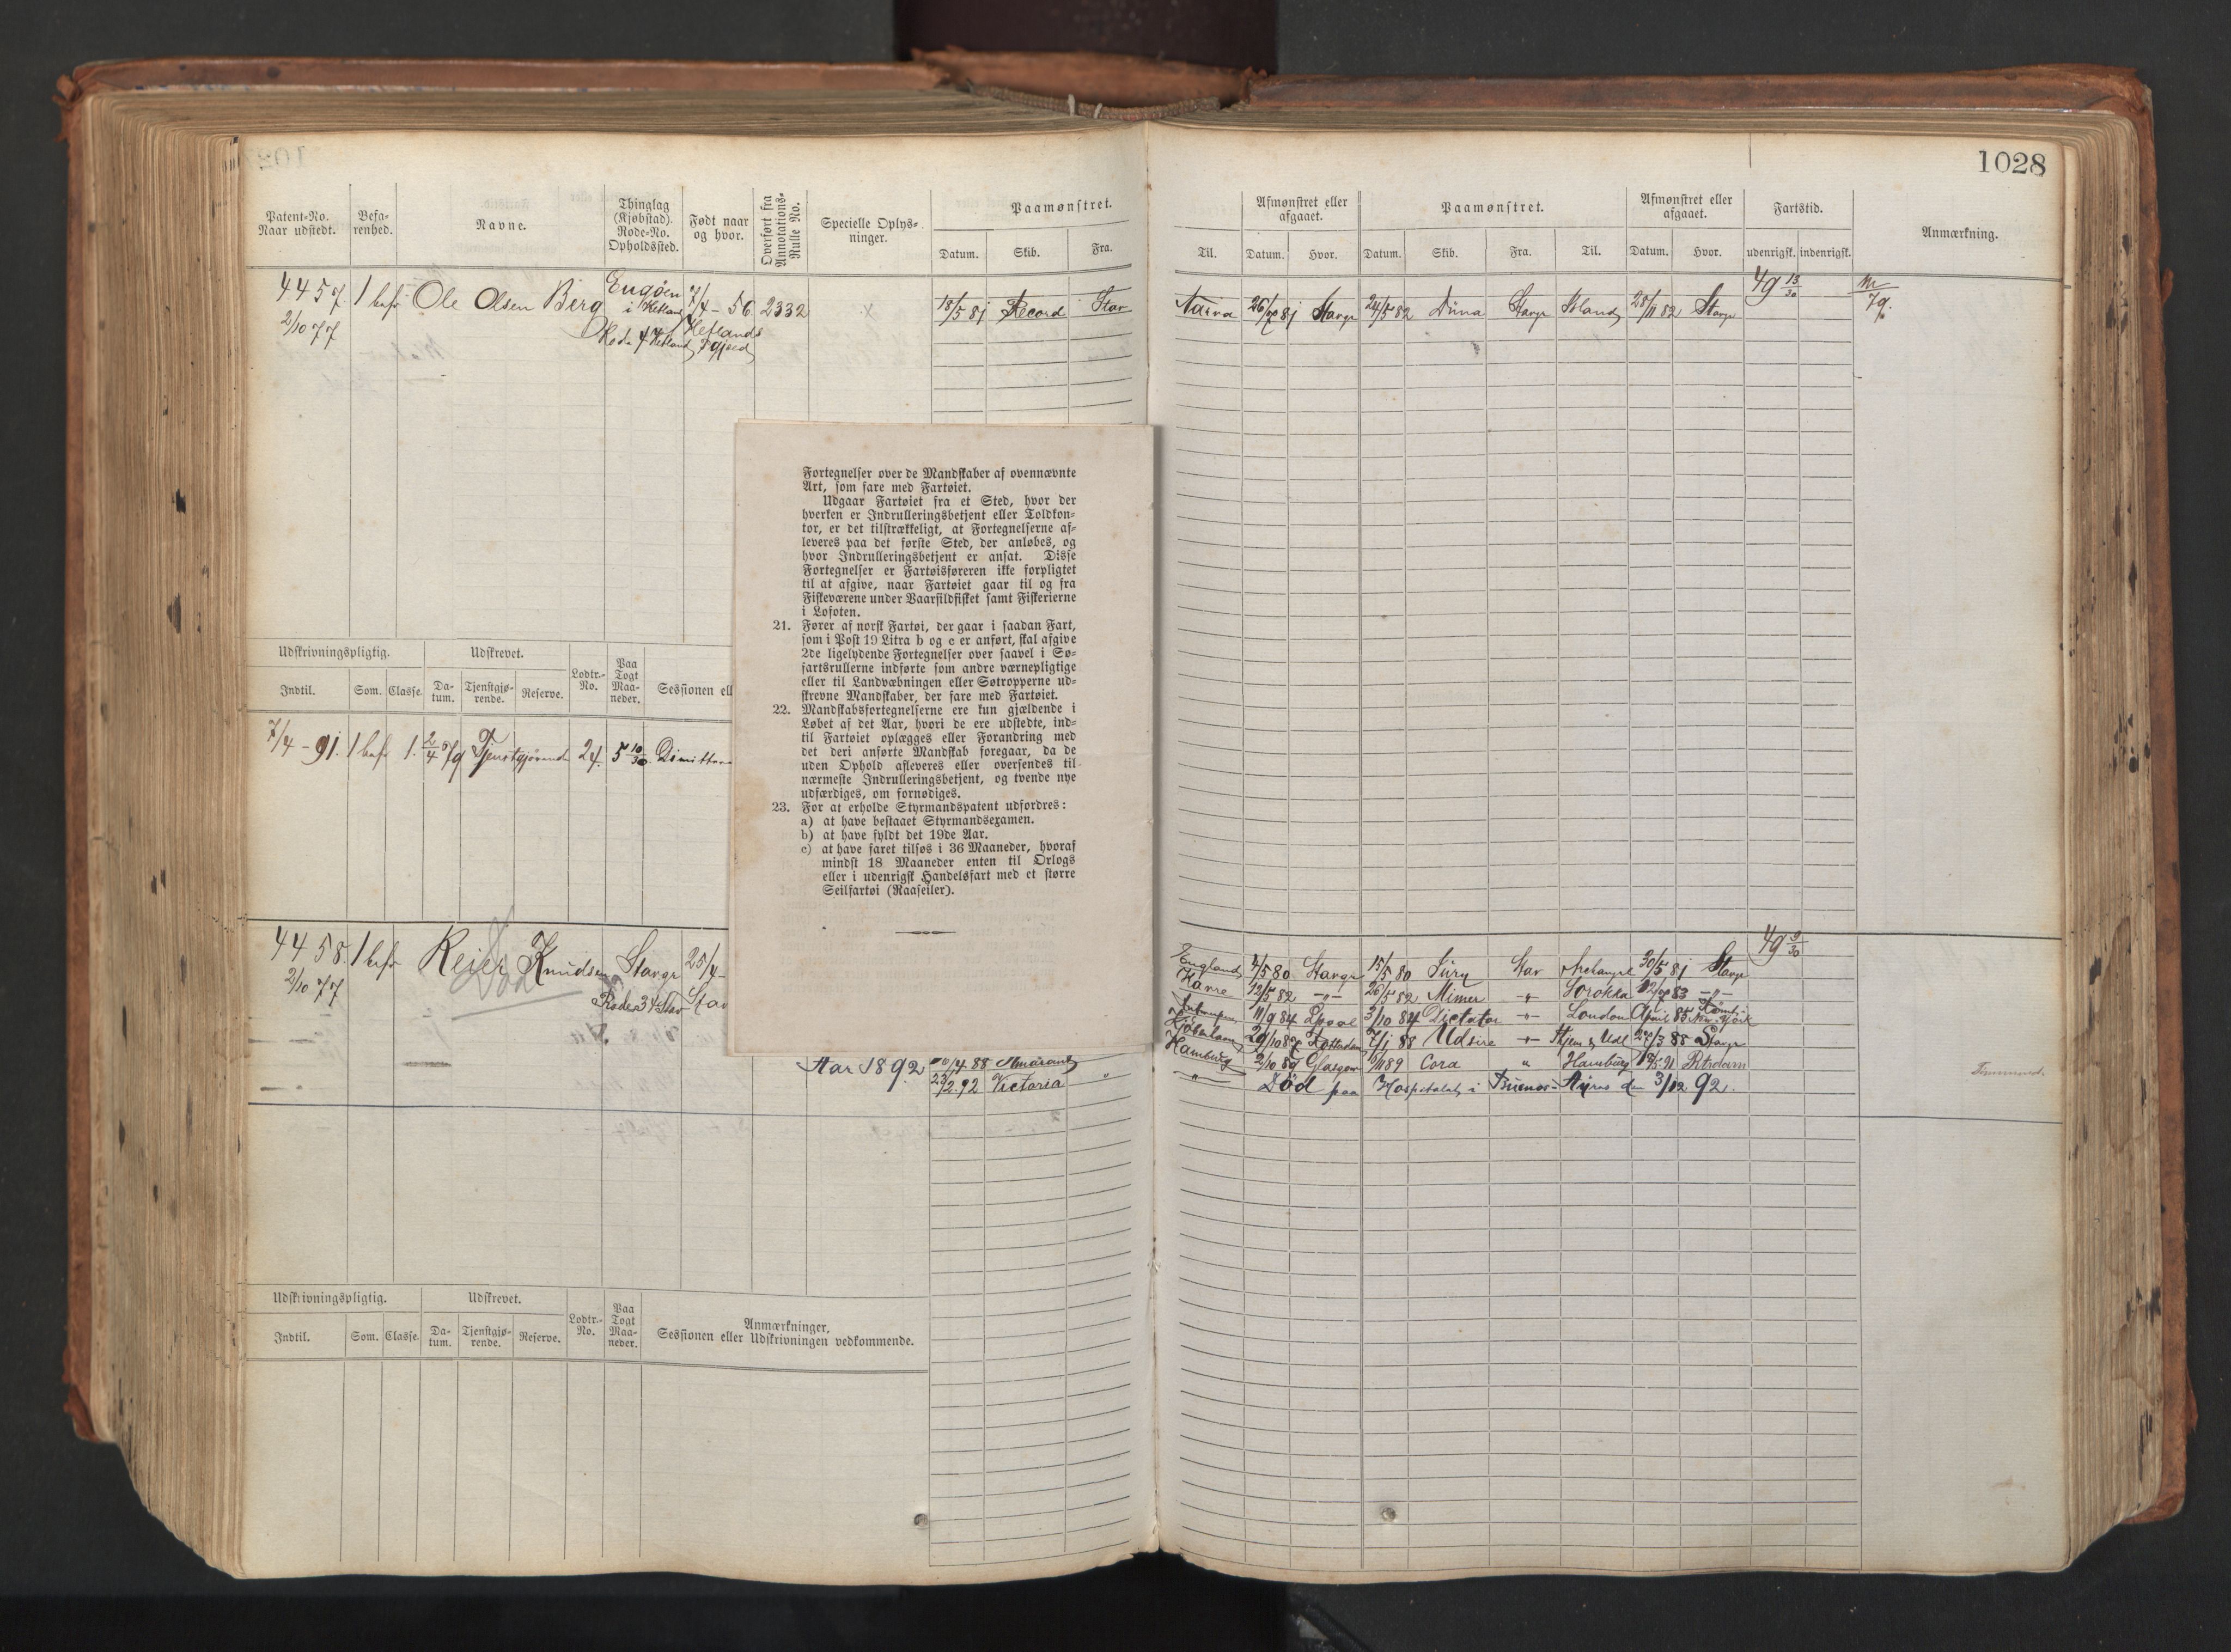 1028
Patent-No.
Naar udstedt.
Befa-
renhed.
Navne.
Thinglag
(Kjøbstad).
Rode-No.
Opholdssted.
Født naar
og hvor.
Overført fra
Annotations-
Rulle No.
Specielle Oplys-
ninger.
Paamønstret.
Datum. Skib. Fra.
Til.
Afmønstret eller
afgaaet.
Datum. Hvor.
Paamønstret.
Datum. Skib. Fra. Til.
Afmønstret eller
afgaaet.
Datum. Hvor.
Fartstid.
udenrigsk. indenrigsk.
Anmærkning.
4457 1 bef Ole Olsen Berg Engøen 7/4-56 2332 18/5 81 Record Stav
2/10 77 i Hetland Hetlands
Rode 4 Hetland
Narva 26/7 81 Stavgr 24/5 82 Düna Stavgr Island 28/11 82 Stavgr
49 13/30
79.
Fortegnelser over de Mandskaber af ovennævnte
Art, som fare med Fartøiet.
Udgaar Fartøiet fra et Sted, hvor der
hverken er Indrulleringsbetjent eller Toldkon-
tor, er det tilstrækkeligt, at Fortegnelserne af-
leveres paa det første Sted, der anløbes, og
hvor Indrulleringsbetjent er ansat. Disse
Fortegnelser er Fartøisføreren ikke forpligtet
til at afgive, naar Fartøiet gaar til og fra
Fiskeværene under Vaarsildfisket samt Fiskerierne
i Lofoten.
21. Fører af norsk Fartøi, der gaar i saadan Fart,
som i Post 19 Litra b og c er anført, skal afgive
2de ligelydende Fortegnelser over saavel i Sø-
fartsrullerne indførte som andre værnepligtige
eller til Landvæbningen eller Søtropperne ud-
skrevne Mandskaber, der fare med Fartøiet.
22. Mandskabsfortegnelserne ere kun gjældende i
Løbet af det Aar, hvori de ere udstedte, ind-
til Fartøiet oplægges eller Forandring med
det deri anførte Mandskab foregaar, da de
uden Ophold afleveres eller oversendes til
nærmeste Indrulleringsbetjent, og tvende nye
udfærdiges, om fornødiges.
23. For at erholde Styrmandspatent udfordres:
a) at have bestaaet Styrmandsexamen.
b) at have fyldt det 19de Aar.
c) at have faret tilsøs i 36 Maaneder, hvoraf
mindst 18 Maaneder enten til Orlogs
eller i udenrigsk Handelsfart med et større
Seilfartøi (Raaseiler).
Udskrivningspligtig.
Indtil. Som. Classe.
Udskrevet.
Da-
tum.
Tjenstgjø-
rende.
Reserve.
Lodtr.-
No.
Paa
Togt
Maa-
neder.
Sessionen ell
7/4-91. 1 bef 1. 2/4 79 Tjenstgjørende 24. 5 10/30
4458. 1 bef Reier Knudsen Stavgr 25/4-
2/10 77 Død Rode 34 Stav Stav
Aar 1892 10/4 88 Amarant
23/2 92 Victoria "
England 4/5 80 Stavgr 15/5 80 Stav Archangel 30/5 81 Stavgr
49 9/30
Havre 12/5 82 -"- 26/5 82 Mimer -"- Sorokka 83 -"-
11/9 84 3/10 84 Dictator -"- London April 85 New-York
Rotterdam 7/1 88 Udsire -"- Hjem & Udl 27/3 88 Stavgr
Hamburg 2/10 89 Glasgow 89 Cora " Hamburg
" Død paa Hospitalet i Buenos-Ayres den 3/12 92.
Udskrivningspligtig.
Indtil. Som. Classe.
Udskrevet.
Da-
tum.
Tjenstgjø-
rende.
Reserve.
Lodtr.-
No.
Paa
Togt
Maa-
neder.
Anmærkninger,
Sessionen eller Udskrivningen vedkommende.